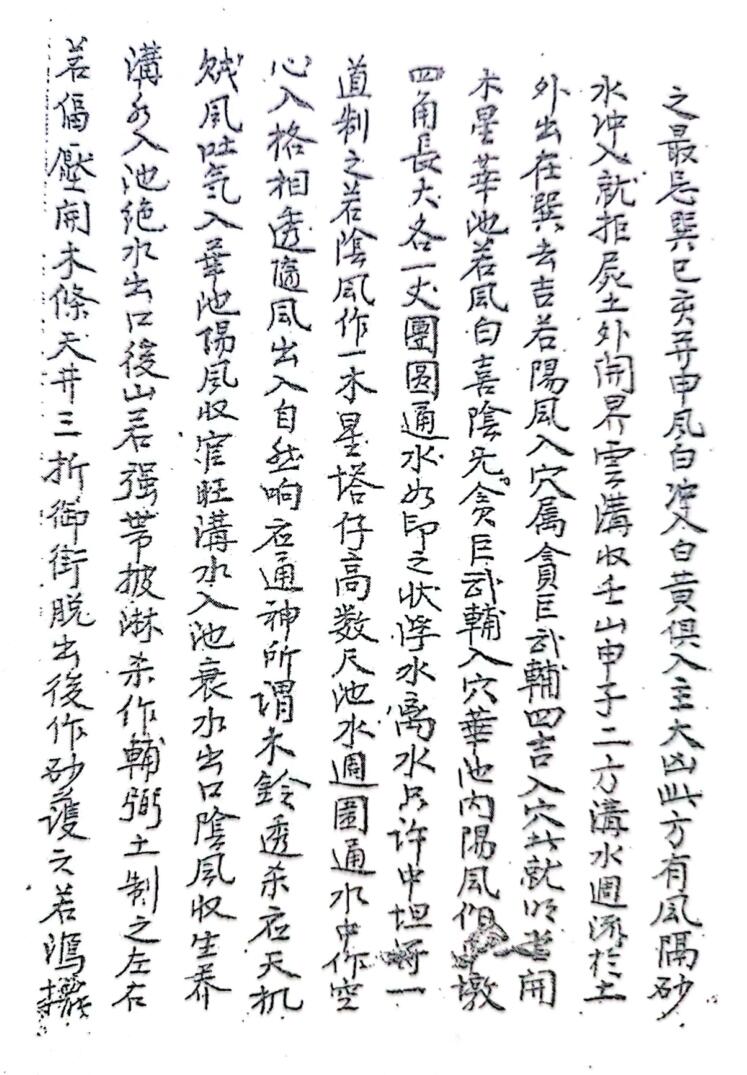 之最忌巽巳亥并申風白冲入白黃俱入主大凶此方有風隔砂
水冲入就拒屍土外開界雲溝收壬山申子二方溝水週流於土
外出在巽去吉若陽風入穴属貪巨武輔四吉入穴此就明堂開
木星華池若風白喜陰先貪巨武輔入穴華池内陽風作墩
四角長大各一丈團圓通水如印之状浮水离水只許中坦一
道制之若陰風作一木星塔仔高数尺池水週圍通水中作空
心入格相透随風出入自然响应通神所謂木鈴透杀应天机
賊風吐气入華池陽風收官旺溝水入池衰水出口陰風收生养
溝水入池绝水出口後山若强带披淋杀作輔弼土制之左右
若偪壓開木條天井三折御街脱出後作砂護之若鴻